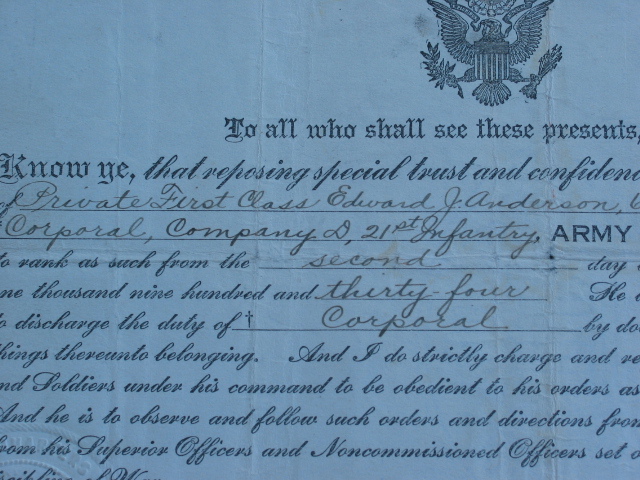 To all who shall see these presents,
Know ye, that reposing special trust and
Private First Class Edward J. Anderson,
Corporal, Company D, 21st Infantry, ARMY
to rank as such from the second day
one thousand nine hundred and thirty-four He
to discharge the duty of † Corporal by
things thereunto belonging. And I do strictly charge and
and Soldiers under his command to be obedient to his orders as
And he is to observe and follow such orders and directions from
from his Superior Officers and Noncommissioned Officers set
of War